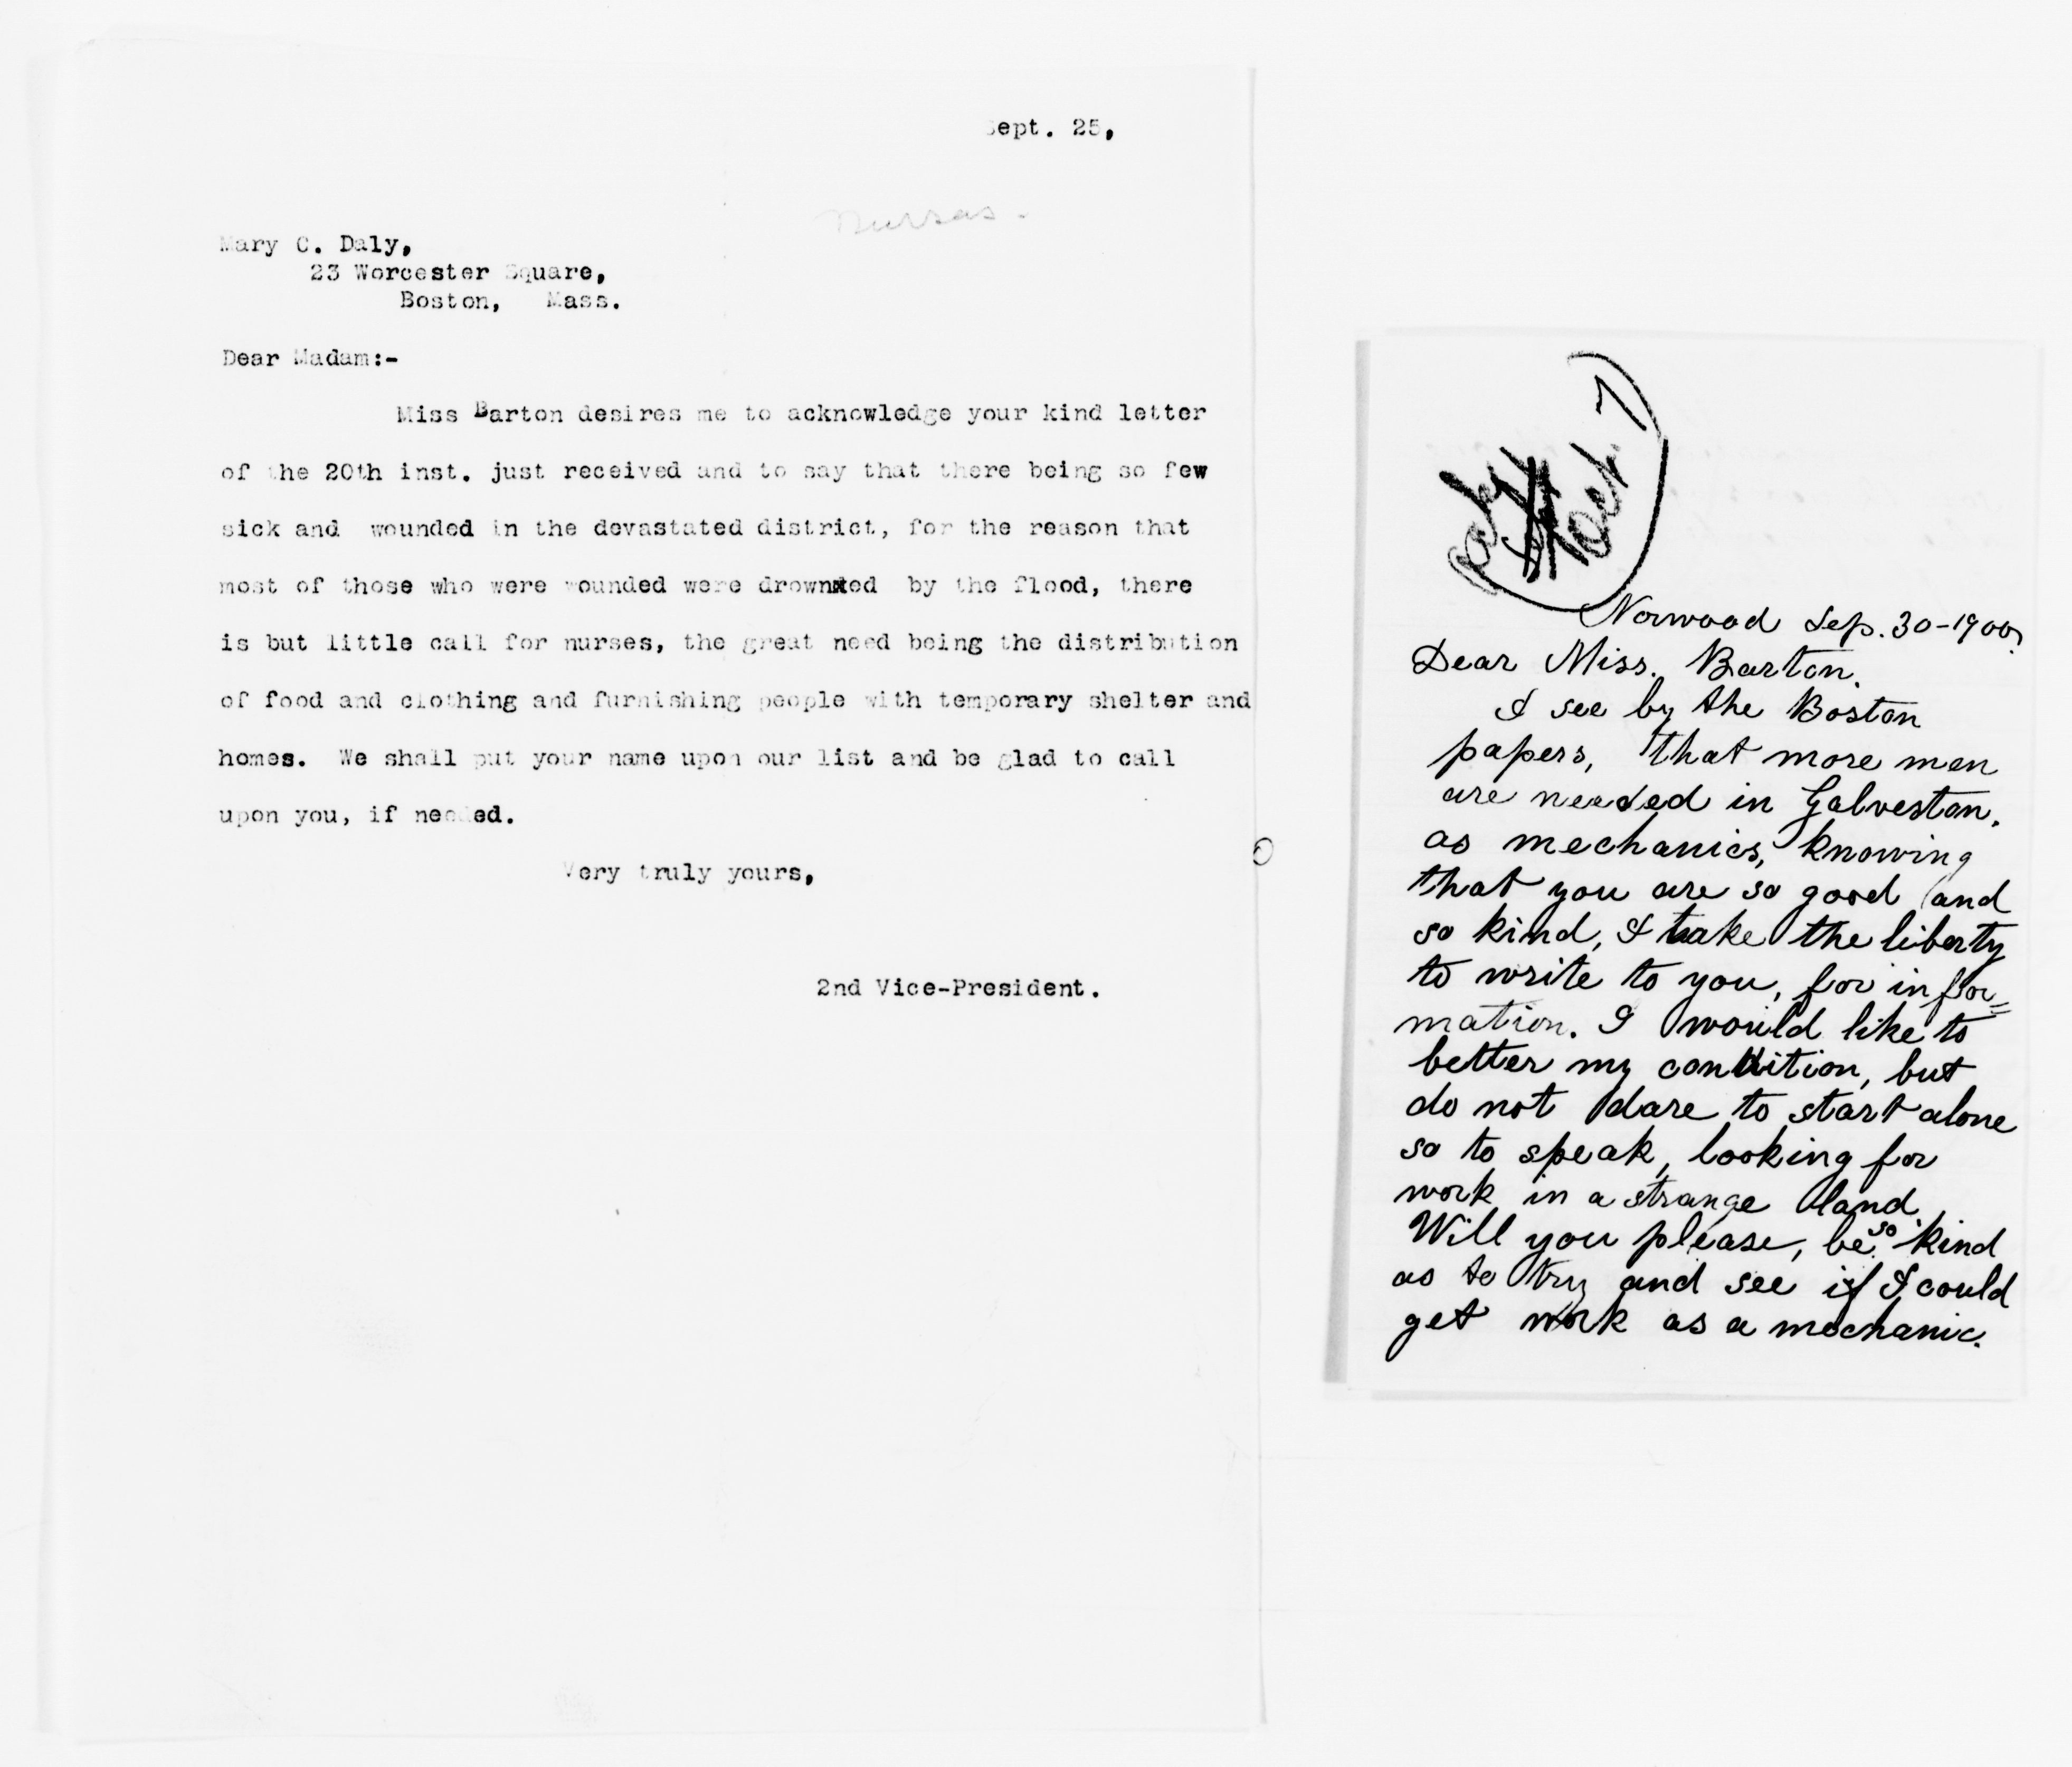 Sept. 25,
Nurses.
Mary C. Daly,
23 Worcester Square,
Boston, Mass.
Dear Madam:-
Miss Barton desires me to acknowledge your kind letter
of the 20th inst. just received and to say that there being so few
sick and wounded in the devastated district, for the reason that
most of those who were wounded were drowned by the flood, there
is but little call for nurses, the great need being the distribution
of food and clothing and furnishing people with temporary shelter and
homes. We shall put your name upon our list and be glad to call
upon you, if needed.
Very truly yours,
2nd Vice-President.
ack
Oct. 7
Norwood Sep. 30-1900.
Dear Miss. Barton.
I see by the Boston
papers, that more men
are needed in Galveston.
as mechanics, knowing
that you are so good and
so kind, I take the liberty
to write to you, for infor=
mation. I would like to
better my condition, but
do not dare to start alone
so to speak, looking for
work in a strange land.
Will you please, be so kind
as to try and see if I could
get work as a mechanic.